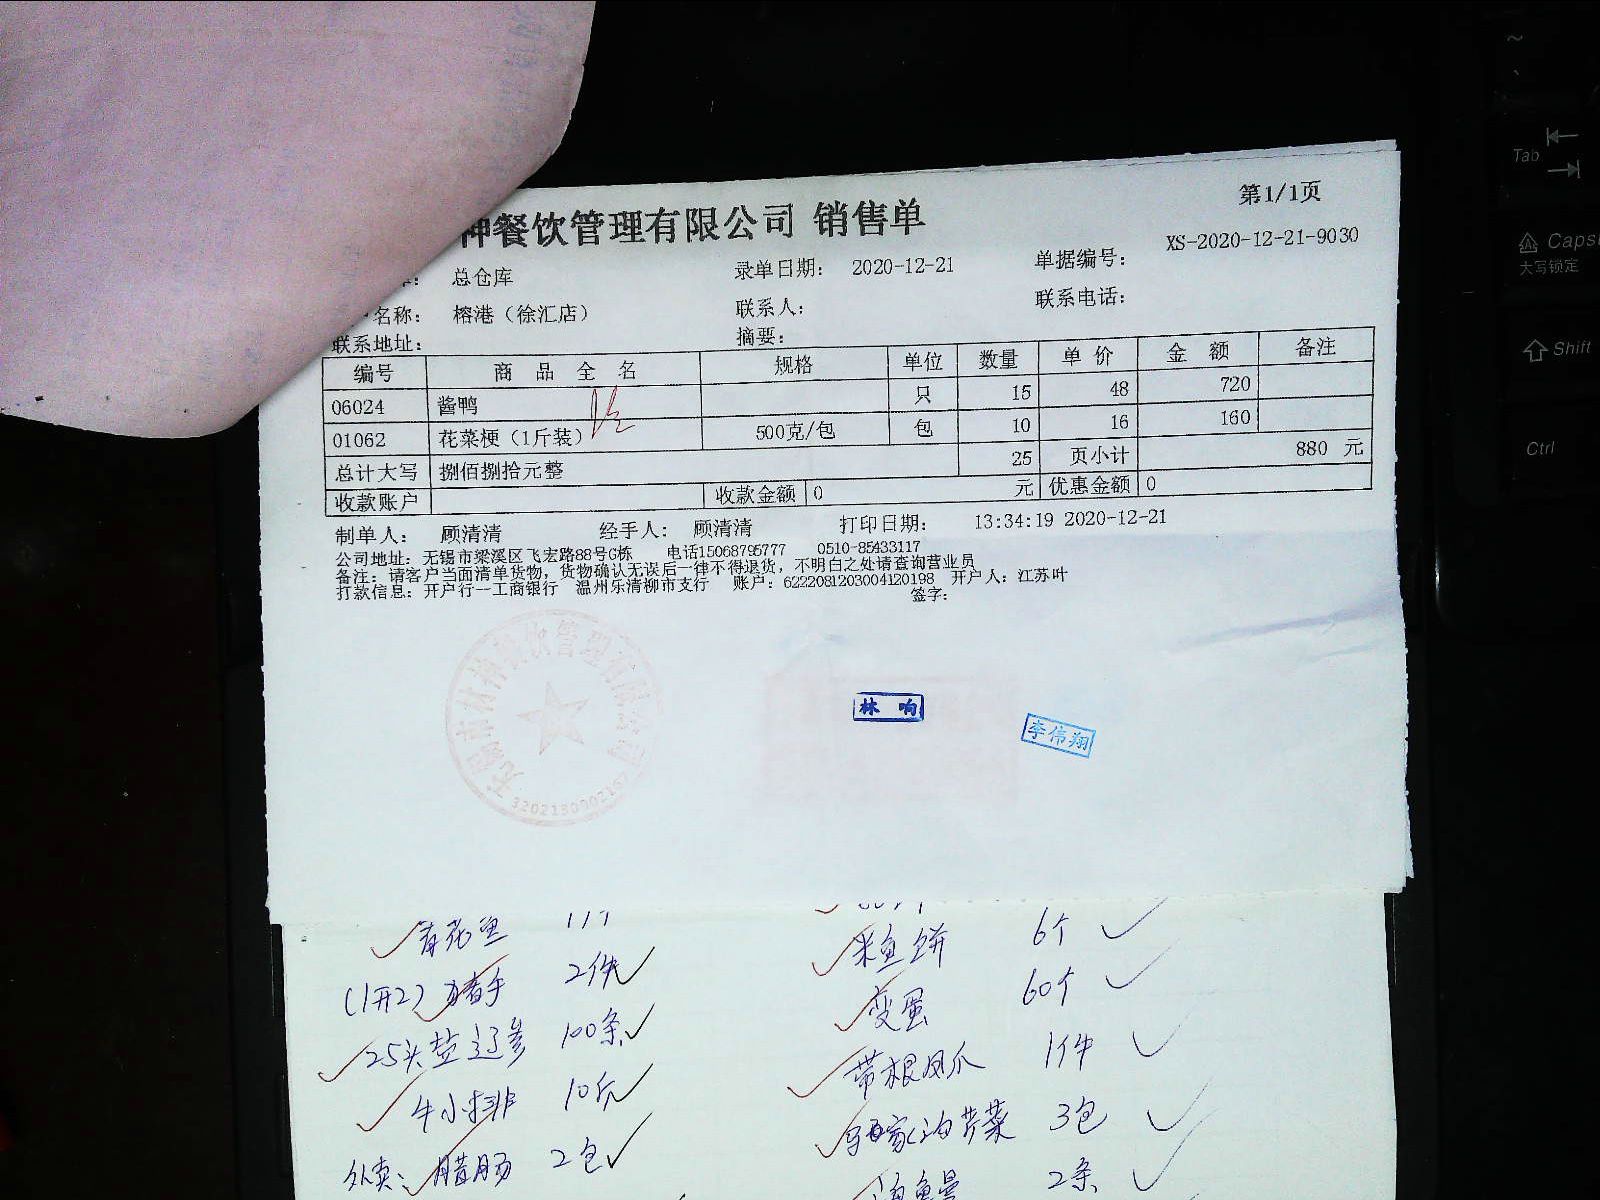 神餐饮管理有限公司 销售单
第1/1页
总仓库 录单日期： 2020-12-21 单据编号： XS-2020-12-21-9030
名称： 榕港（徐汇店） 联系人： 联系电话：
联系地址： 摘要：
编号 商品全名 规格 单位 数量 单价 金额 备注
06024 酱鸭 只 15 48 720
01062 花菜梗（1斤装） 500克/包 包 10 16 160
总计大写 捌佰捌拾元整 25 页小计 880 元
收款账户 收款金额 0 元 优惠金额 0
制单人： 顾清清 经手人： 顾清清 打印日期： 13:34:19 2020-12-21
公司地址：无锡市梁溪区飞宏路88号G栋 电话15068795777 0510-85433117
备注：请客户当面清单货物，货物确认无误后一律不得退货，不明白之处请查询营业员
打款信息：开户行一工商银行 温州乐清柳市支行 账户：6222081203004120198 开户人：江苏叶
签字：
林响
李伟翔
青花鱼
米鱼饼 6个
(1开2) 猪手 2件
变蛋 60个
25头盐辽参 100条
带根凤爪 1件
牛小排 10斤
芹菜 3包
外卖：腊肠 2包
2条